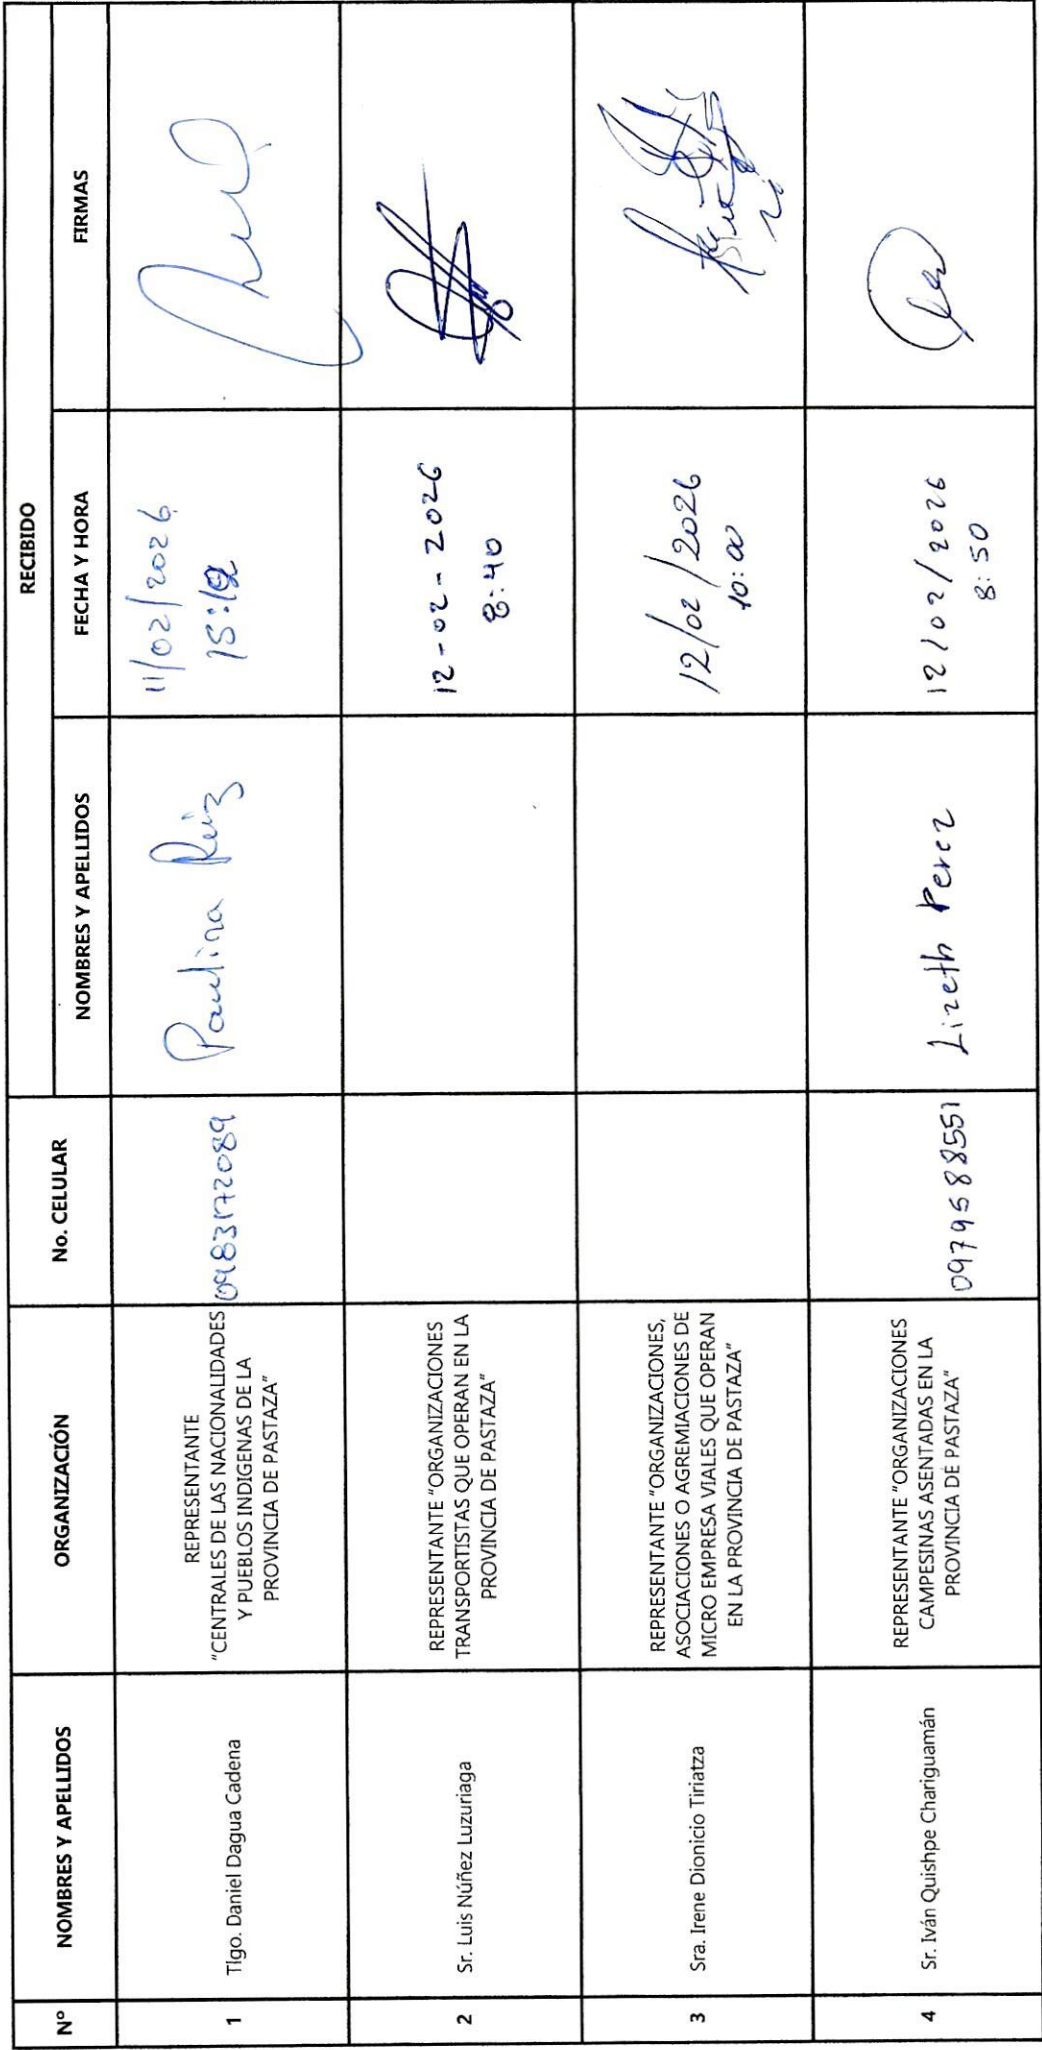 RECIBIDO
Nº NOMBRES Y APELLIDOS ORGANIZACIÓN No. CELULAR NOMBRES Y APELLIDOS FECHA Y HORA FIRMAS
1
Tlgo. Daniel Dagua Cadena
REPRESENTANTE
"CENTRALES DE LAS NACIONALIDADES
Y PUEBLOS INDIGENAS DE LA
PROVINCIA DE PASTAZA"
0983172089
Paulina Ruiz
11/02/2026
2
Sr. Luis Núñez Luzuriaga
REPRESENTANTE "ORGANIZACIONES
TRANSPORTISTAS QUE OPERAN EN LA
PROVINCIA DE PASTAZA"
12-02-2026
8:40
3
Sra. Irene Dionicio Tiriatza
REPRESENTANTE "ORGANIZACIONES,
ASOCIACIONES O AGREMIACIONES DE
MICRO EMPRESA VIALES QUE OPERAN
EN LA PROVINCIA DE PASTAZA"
12/02/2026
10:00
4
Sr. Iván Quishpe Chariguamán
REPRESENTANTE "ORGANIZACIONES
CAMPESINAS ASENTADAS EN LA
PROVINCIA DE PASTAZA"
0979588551
Lizeth Perez
12/02/2026
8:50